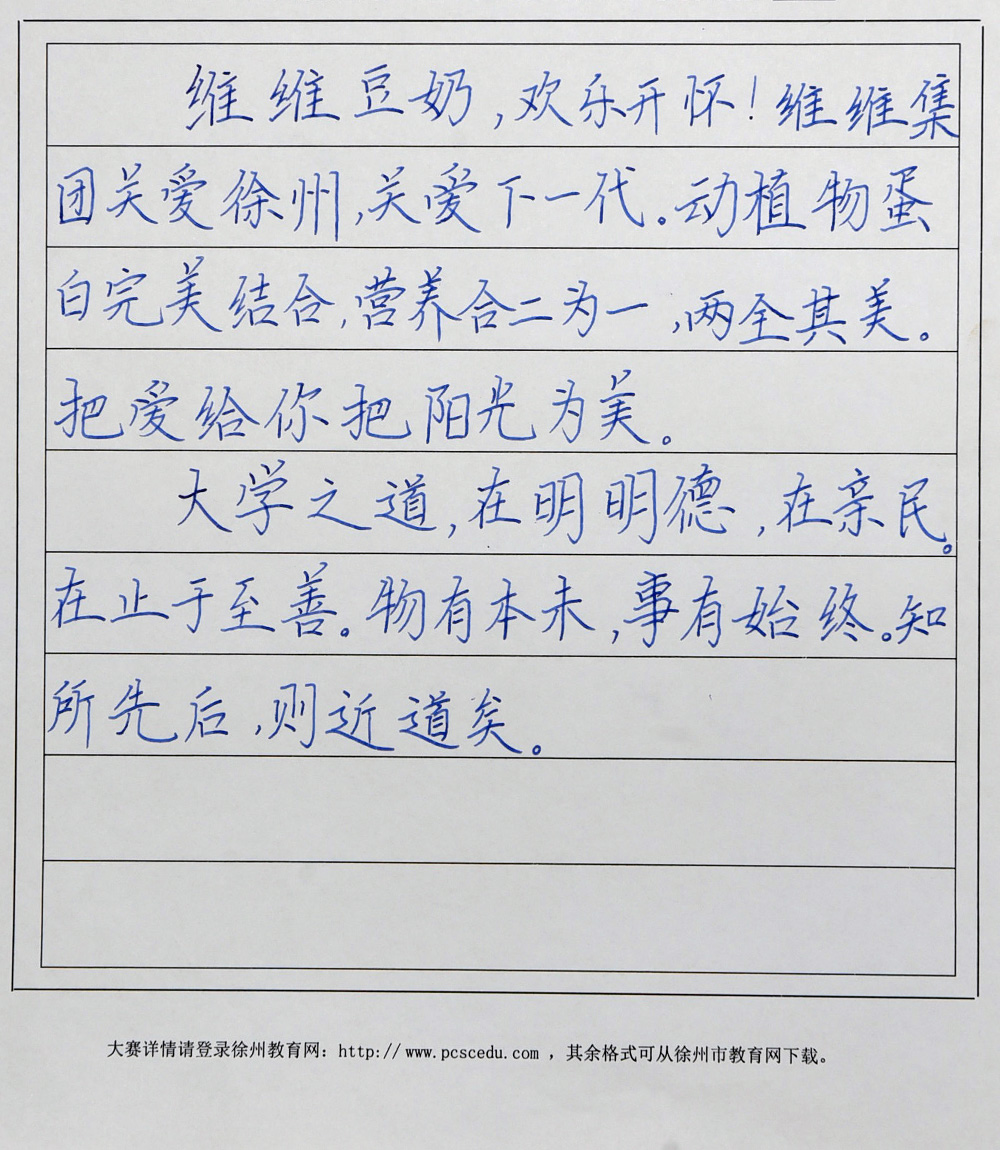 维维豆奶,欢乐开怀!维维集
团关爱徐州,关爱下一代。动植物蛋
白完美结合,营养合二为一,两全其美。
把爱给你把阳光为美。
大学之道,在明明德,在亲民。
在止于至善。物有本末,事有始终。知
所先后,则近道矣。
大赛详情请登录徐州教育网:http://www.pcscedu.com,其余格式可从徐州市教育网下载。